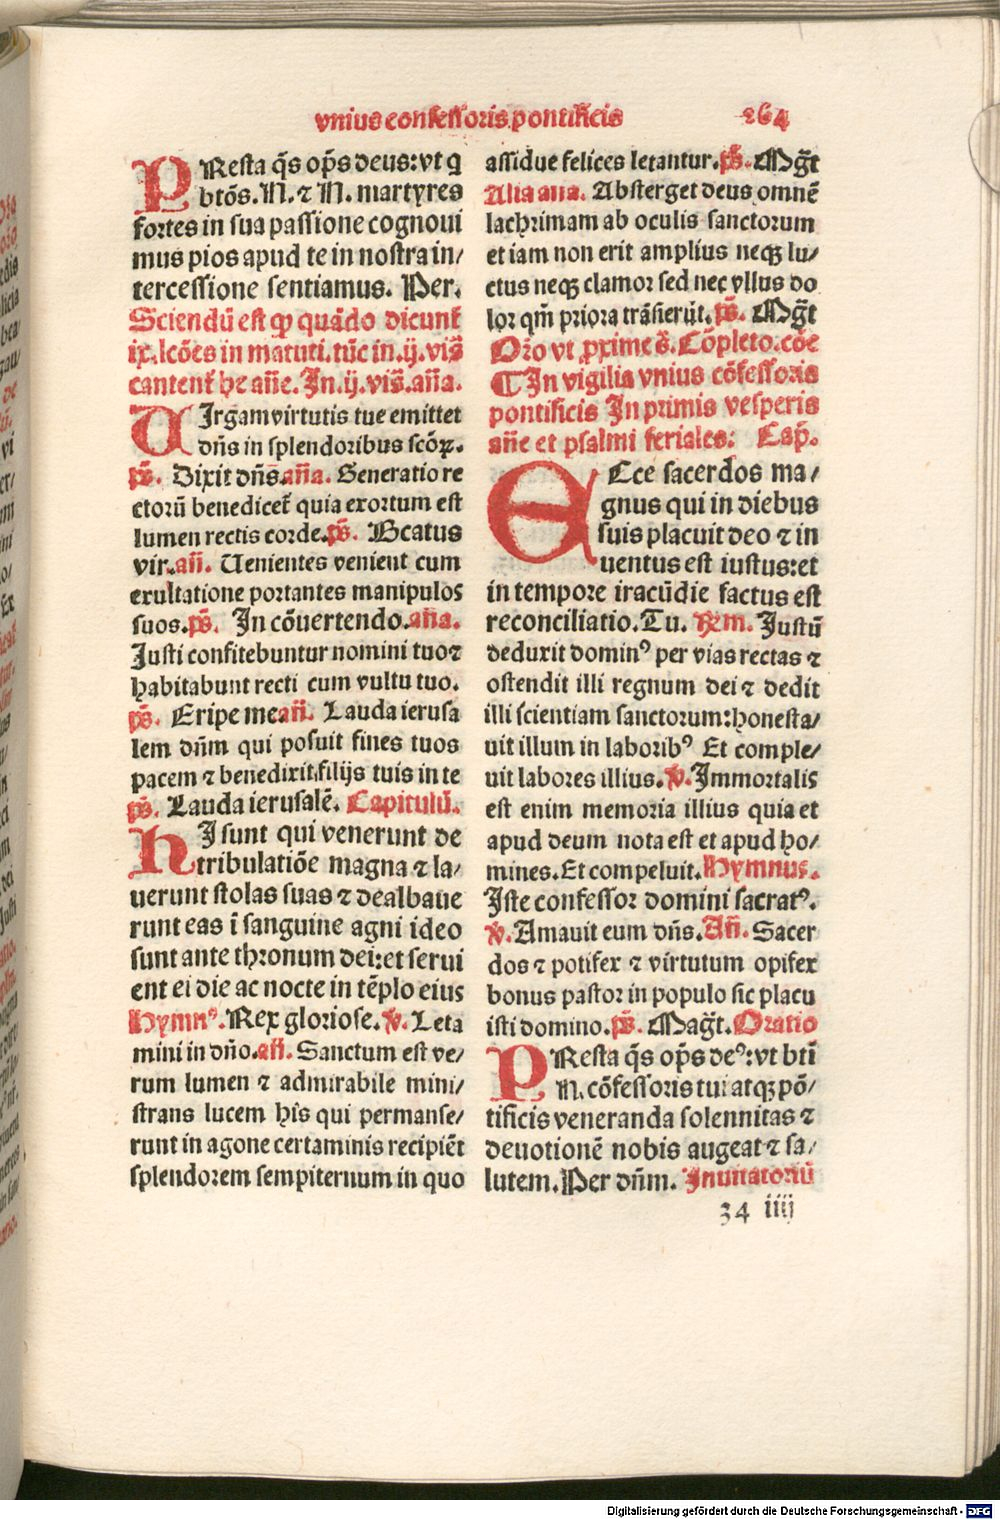 vnius confessoris pontificis 264
PResta q̄s op̄s deus: vt q
btōs. N. ⁊ N. martyres
fortes in sua passione cognoui
mus pios apud te in nostra in/
tercessione sentiamus. Per.
Sciendū est ꝙ quādo dicunt̄
ix. lcōes in matuti. tūc in .ij. vis̄
cantent̄ he añe. In .ij. vis̄. aña.
UIrgam virtutis tue emittet
dn̄s in splendoribus scōꝝ.
ps̄. Dixit dn̄s. aña. Generatio re
ctorū benedicet̄ quia exortum est
lumen rectis corde. ps̄. Beatus
vir. añ. Uenientes venient cum
exultatione portantes manipulos
suos. ps̄. In cōuertendo. aña.
Justi confitebuntur nomini tuo ⁊
habitabunt recti cum vultu tuo.
ps̄. Eripe me añ. Lauda ierusa
lem dn̄m qui posuit fines tuos
pacem ⁊ benedixit filijs tuis in te
ps̄. Lauda ierusalē. Capitulū.
hI sunt qui venerunt de
tribulatiōe magna ⁊ la/
uerunt stolas suas ⁊ dealbaue
runt eas ī sanguine agni ideo
sunt ante thronum dei: et serui
ent ei die ac nocte in tēplo eius
Hymnꝰ. Rex gloriose. ℣. Leta
mini in dn̄o. añ. Sanctum est ve/
rum lumen ⁊ admirabile mini/
strans lucem his qui permanse/
runt in agone certaminis recipiēt
splendorem sempiternum in quo
assidue felices letantur. ps̄. Mḡt
Alia ana. Absterget deus omnē
lachrimam ab oculis sanctorum
et iam non erit amplius neqꝫ lu/
ctus neqꝫ clamor sed nec vllus do
lor qm̄ priora trāsierūt. ps̄. Mḡt
Orō vt ꝓxime s̄. Cōpleto. cōe
¶ In vigilia vnius cōfessoris
pontificis In primis vesperis
añe et psalmi feriales: Cap̄.
ECce sacerdos ma/
gnus qui in diebus
suis placuit deo ⁊ in
uentus est iustus: et
in tempore iracūdie factus est
reconciliatio. Tu. ℟m. Justū
deduxit dominꝰ per vias rectas ⁊
ostendit illi regnum dei ⁊ dedit
illi scientiam sanctorum: honesta/
uit illum in laboribꝰ Et comple/
uit labores illius. ℣. Immortalis
est enim memoria illius quia et
apud deum nota est et apud ho/
mines. Et compeluit. Hymnus.
Iste confessor domini sacratꝰ.
℣. Amauit eum dn̄s. Añ. Sacer
dos ⁊ potifex ⁊ virtutum opifex
bonus pastor in populo sic placu
isti domino. ps̄. Maḡt. Oratio
PResta q̄s op̄s deꝰ: vt btī
N. cōfessoris tui atqꝫ pō/
tificis veneranda solennitas ⁊
deuotionē nobis augeat ⁊ sa/
lutem. Per dn̄m. Inuitatoriū
34 iiij
Digitalisierung gefördert durch die Deutsche Forschungsgemeinschaft - DFG